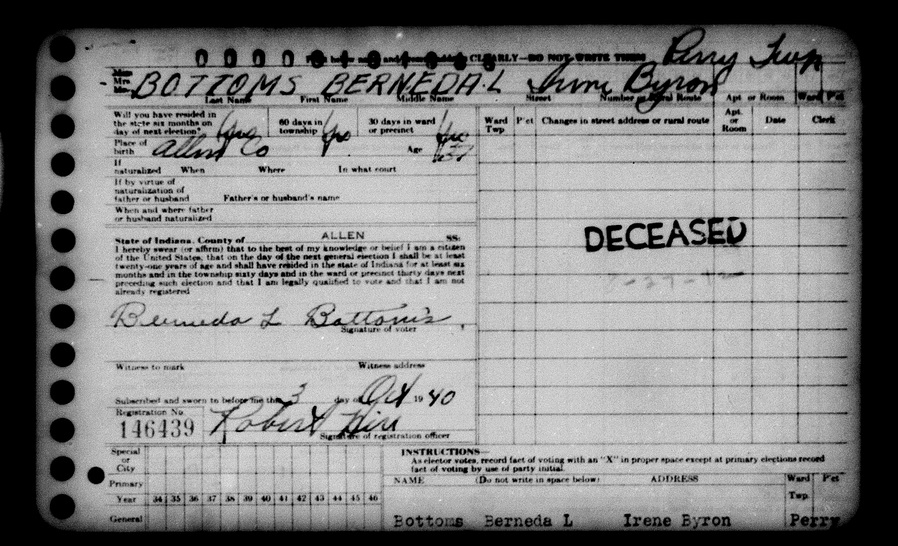 CLEARLY—DO NOT WRITE THESE Perry Twp
Mrs. BOTTOMS BERNEDA L Irene Byron
Last Name First Name Middle Name Street Number or Rural Route Apt or Room Ward Pct
Will you have resided in the state six months on day of next election? yes 60 days in township yes 30 days in ward or precinct yes
Ward Twp P'ct Changes in street address or rural route Apt. or Room Date Clerk
Place of birth Allen Co Age
If naturalized When Where In what court
If by virtue of
naturalization of
father or husband Father's or husband's name
When and where father
or husband naturalized
State of Indiana, County of ALLEN SS:
I hereby swear (or affirm) that to the best of my knowledge or belief I am a citizen
of the United States, that on the day of the next general election I shall be at least
twenty-one years of age and shall have resided in the state of Indiana for at least six
months and in the township sixty days and in the ward or precinct thirty days next
preceding such election and that I am legally qualified to vote and that I am not
already registered
DECEASED
Berneda L Bottoms
Signature of voter
Witness to mark Witness address
Subscribed and sworn to before me this 3 day of Oct 1940
Registration No.
146439 Robert
Signature of registration officer
Special
or
City
Primary
Year 34 35 36 37 38 39 40 41 42 43 44 45 46
General
INSTRUCTIONS—
As elector votes, record fact of voting with an "X" in proper space except at primary elections record
fact of voting by use of party initial.
NAME (Do not write in space below) ADDRESS Ward P'ct
Twp.
Bottoms Berneda L Irene Byron Perry